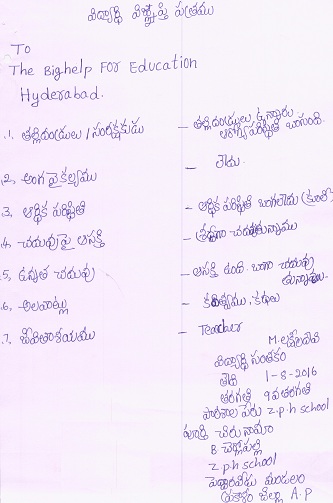 విద్యార్థి విజ్ఞప్తి పత్రము
To
The Bighelp For Education
Hyderabad.
1. తల్లిదండ్రులు / సంరక్షకుడు – తల్లిదండ్రులు ఉన్నారు.
ఆరోగ్య పరిస్థితి బాగుంది.
2. అంగవైకల్యము – లేదు.
3. ఆర్థిక పరిస్థితి – ఆర్థిక పరిస్థితి బాగలేదు (కూలి)
4. చదువుపై ఆసక్తి – శ్రద్ధగా చదువుతున్నాము
5. ఉన్నత చదువు – ఆసక్తి ఉంది. బాగా చదువు
తున్నాము.
6. అలవాట్లు – కవిత్వము, కథలు
7. జీవితాశయము – Teacher
M. లక్ష్మీదేవి
విద్యార్థి సంతకం
తేది 1-8-2016
తరగతి 9వ తరగతి
పాఠశాల పేరు Z.p.h school
పూర్తి చిరునామా
B. చెర్లోపల్లి
Z p h school
పెద్దారవీడు మండలం
ప్రకాశం జిల్లా A.P